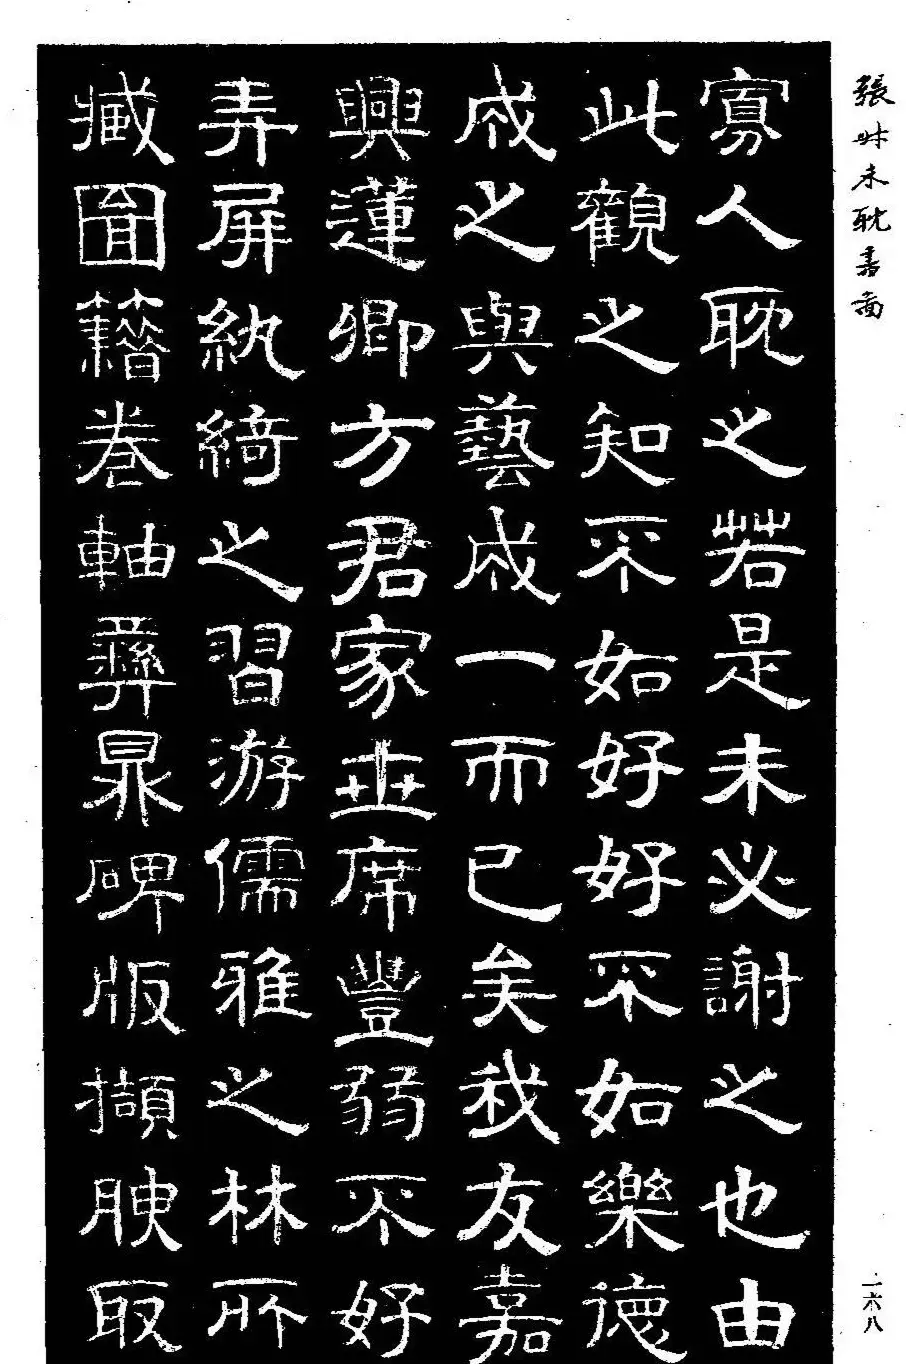 張叔未耽書啚
寡人耽之若是未必謝之也由
此觀之知不如好好不如樂德
成之與藝成一而已矣我友嘉
興蓮卿方君家世席豐弱不好
弄屏紈綺之習游儒雅之林所
藏圖籍卷軸彝鼎碑版擷腴取
一六八